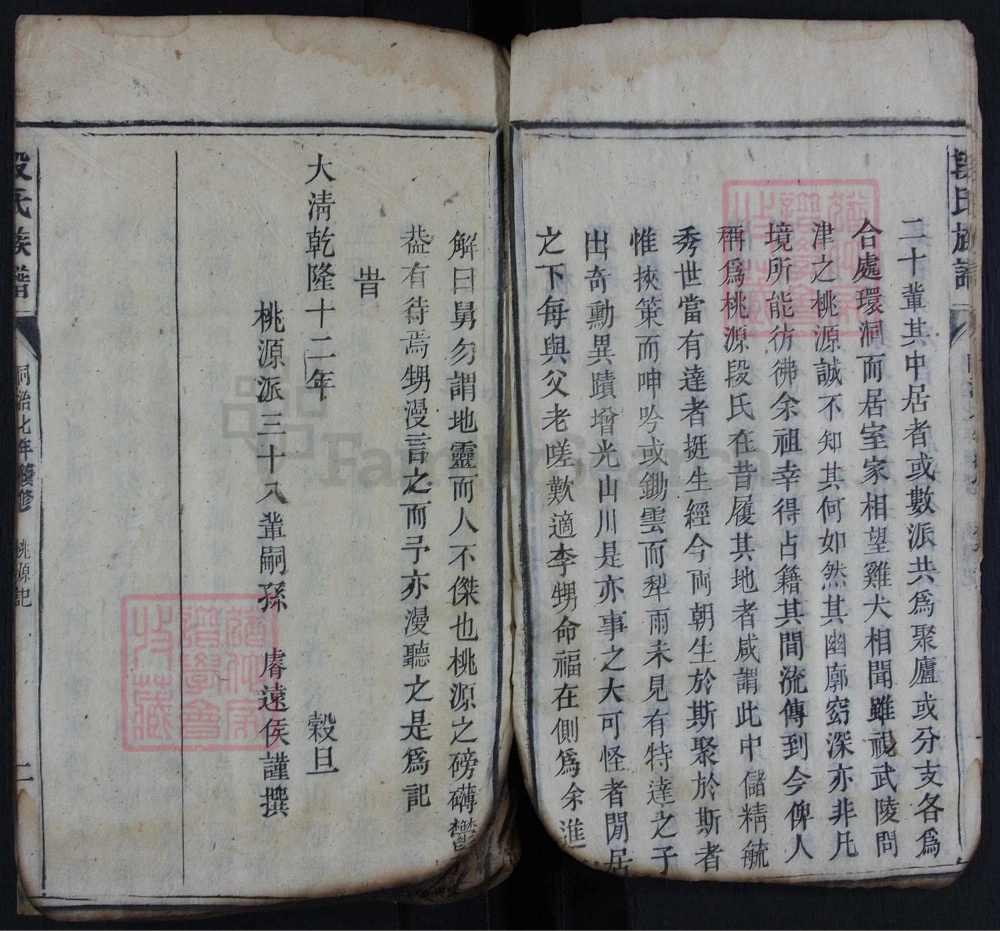 段氏族譜
二十軰其中居者或數派共爲聚廬或分支各爲
合處環洞而居室家相望雞犬相聞雖視武陵問
津之桃源誠不知其何如然其幽廓窈深亦非凡
境所能彷彿余祖幸得占籍其間流傳到今俾人
稱爲桃源段氏在昔履其地者咸謂此中儲精毓
秀世當有達者挺生經今両朝生於斯聚於斯者
惟挾策而呻吟或鋤雲而犁雨未見有特達之子
出奇勳異蹟增光山川是亦事之大可怪者閒居
之下每與父老嗟歎適李甥命福在側爲余進
解曰舅勿謂地靈而人不傑也桃源之磅礴鬱
葢有待焉甥漫言之而予亦漫聽之是爲記
旹
大清乾隆十二年 穀旦
桃源派三十八軰嗣孫 睿遠侯謹撰
段氏族譜 同治七年續修 桃源記 二
FamilySearch